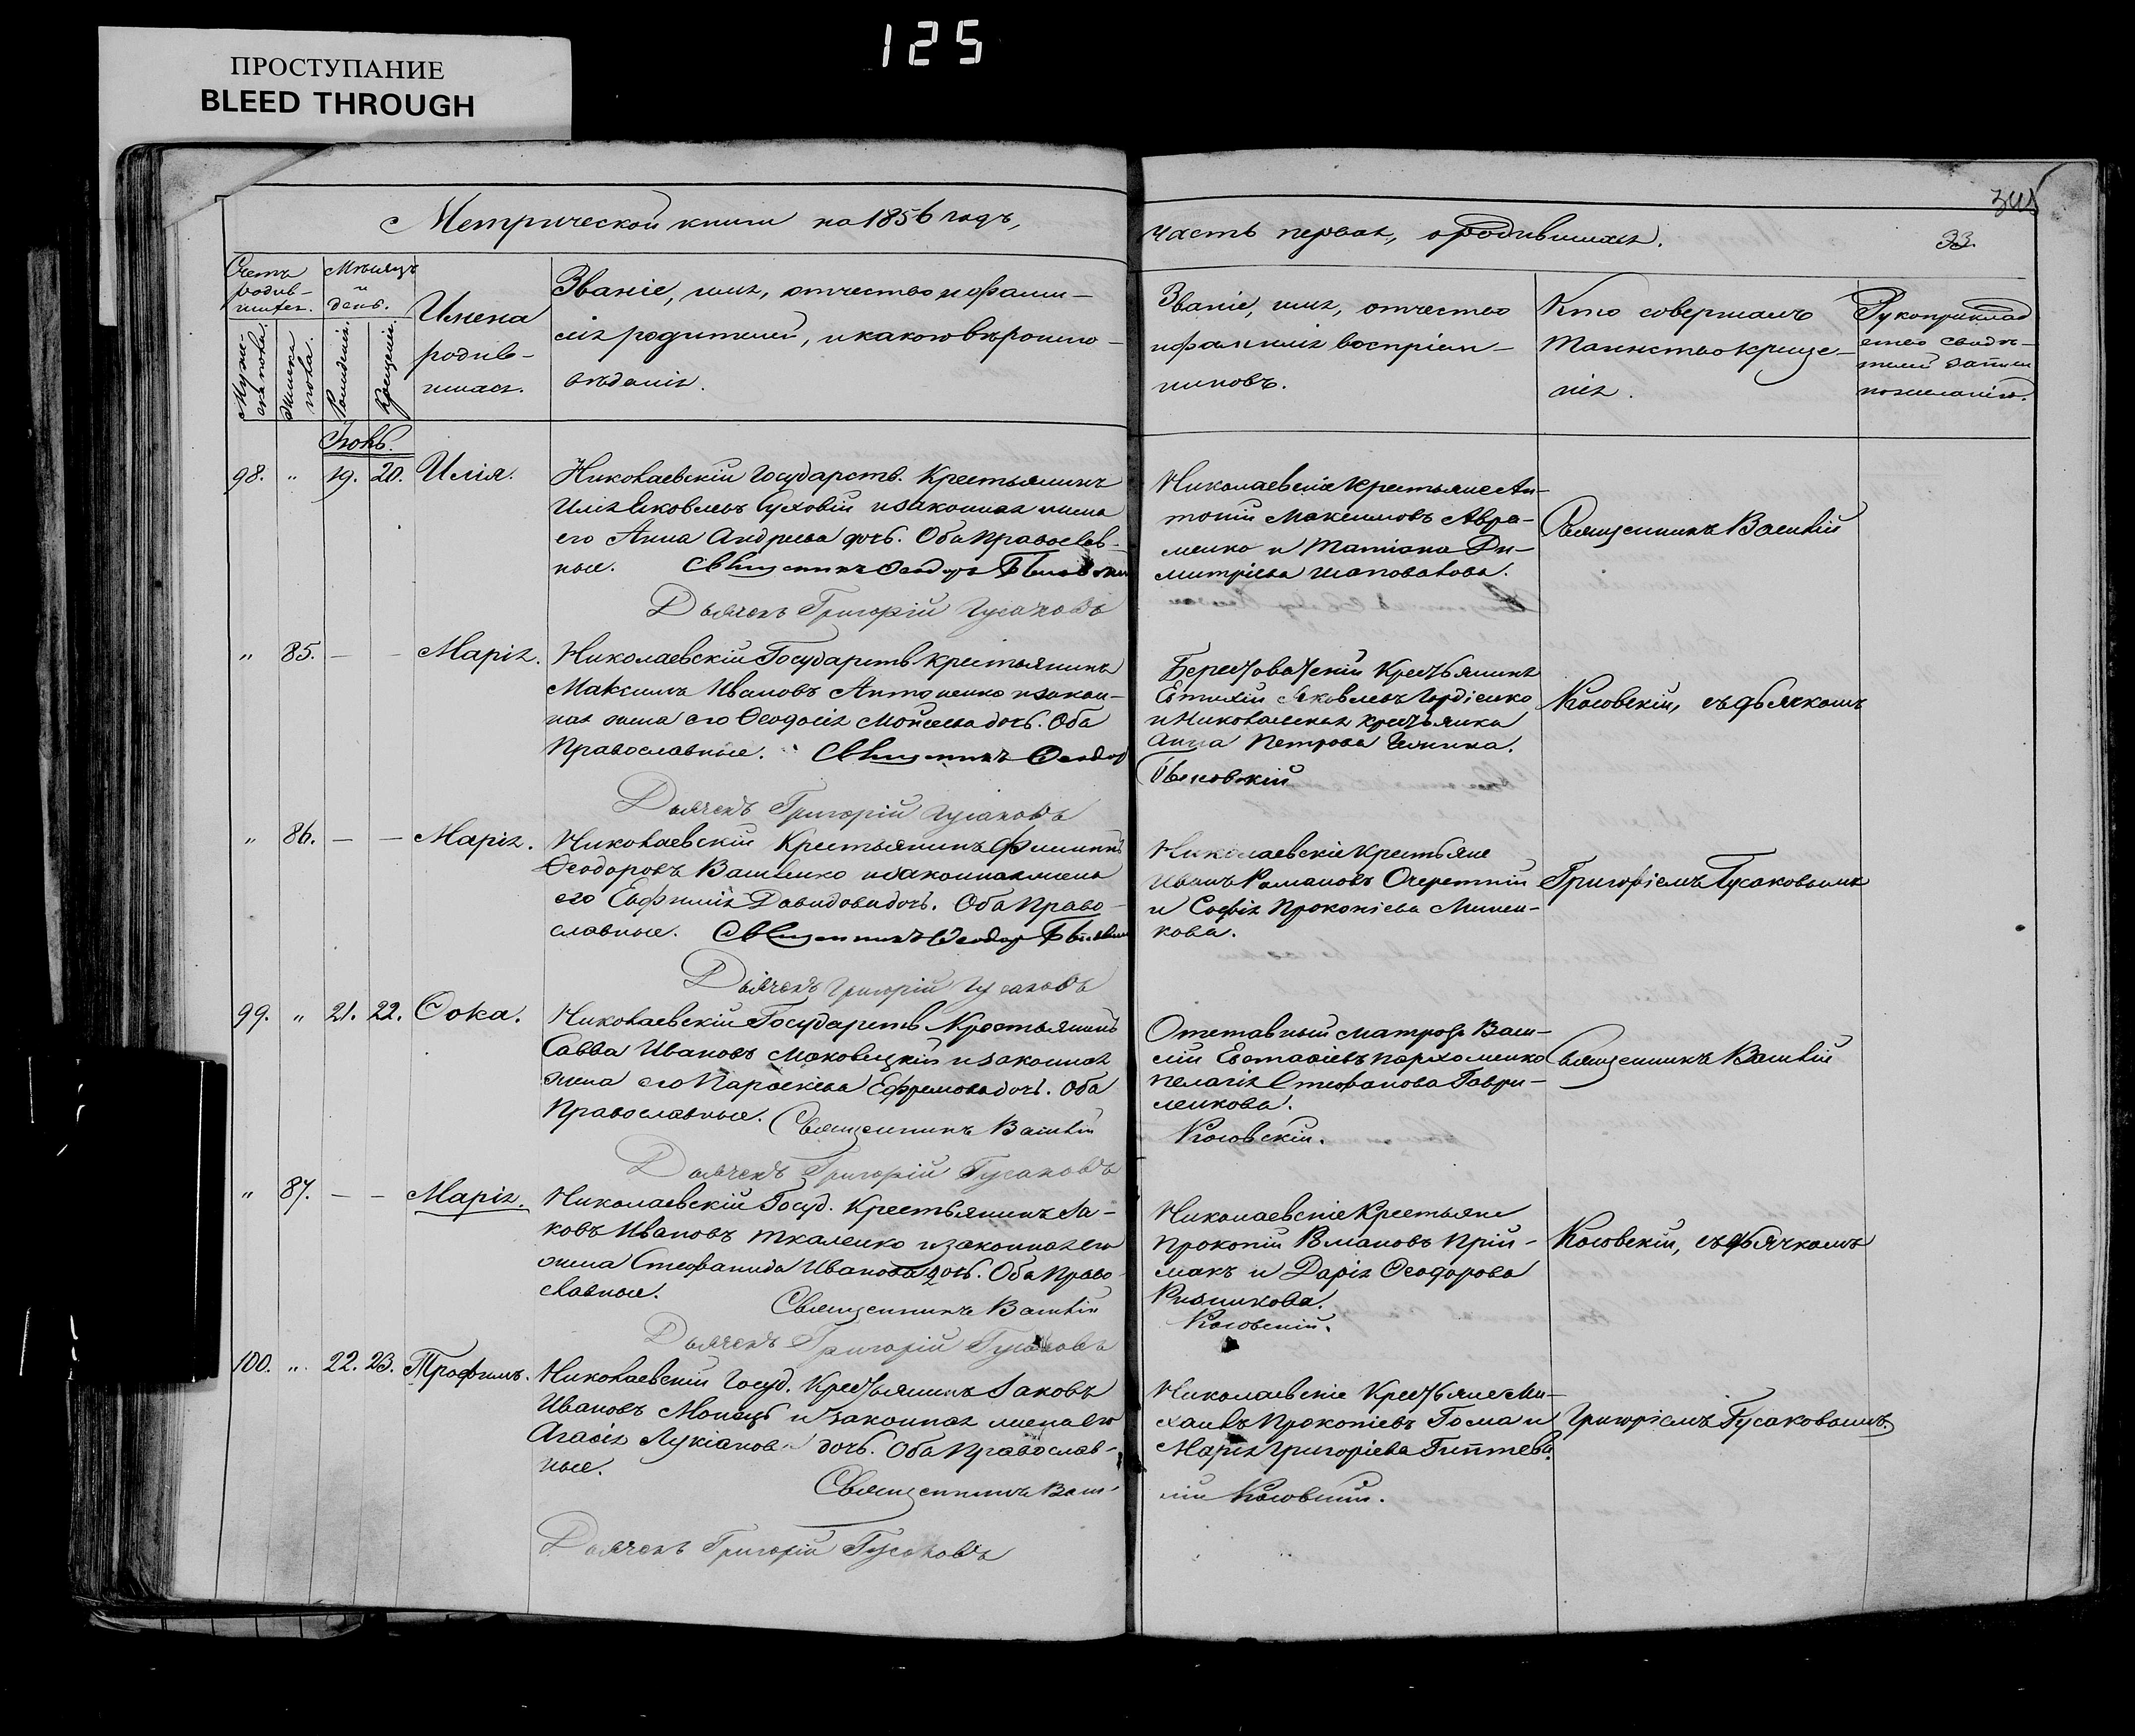 125
ПРОСТУПАНИЕ
BLEED THROUGH
Метрической книги на 1856 годъ,
часть первая, о родившихся.
33.
Счетъ родив-шихся.
Мѣсяцъ и день.
Мужескаго пола.
Женска пола.
Рожденія.
Крещенія.
Имена
родив-
шихся.
Званіе, имя, отчество и фами-
лія родителей, и какого вѣроиспо-
вѣданія.
Званіе, имя, отчество
и фамилія воспріем-
никовъ.
Кто совершалъ
таинство креще-
нія.
Рукоприклад
ство свидѣ-
телей записи
по желанію.
Іюнь.
98. " 19. 20. Илія.
Николаевскій Государств. Крестьянинъ
Илія Яковлевъ Суховій и законная жена
его Анна Андреева дочь. Оба Православ-
ные. Священникъ Ѳеодоръ
Дьячекъ Григорій Гусаковъ
Николаевскіе крестьяне Ан-
тоній Максимовъ Авра-
менко и Татіана Ди-
митріева Шаповалова.
Священникъ Василій
" 85. — — Марія.
Николаевскій Государств крестьянинъ
Максимъ Ивановъ Антоненко и закон-
ная жена его Ѳеодосія Мойсеева дочь. Оба
Православные. Священникъ Ѳеодор
Дьячекъ Григорій Гусаковъ
Берестоватскій Крестьянинъ
Евтихій Яковлевъ Гордіенко
и Николаевская крестьянка
Анна Петрова
Косовскій, съ дьячкомъ
" 86. — — Марія.
Николаевскій Крестьянинъ Филиппъ
Ѳеодоровъ Василенко и законная жена
его Евфимія Давидова дочь. Оба Право-
славные. Священникъ Ѳеодор
Дьячекъ Григорій Гусаковъ
Николаевскіе крестьяне
Иванъ Романовъ Очеретній
и Софія Прокопіева Милен-
кова.
Григоріемъ Гусаковымъ
99. " 21. 22. Ѳока.
Николаевскій Государств Крестьянинъ
Савва Ивановъ Маковецкій и законная
жена его Параскева Ефремова дочь. Оба
Православные. Священникъ Василій
Дьячекъ Григорій Гусаковъ
Отставный матрозъ Васи-
лій Евстафіевъ Пархоменко
Пелагія Стефанова Гаври-
ленкова.
Косовскій.
Священникъ Василій
" 87. — — Марія.
Николаевскій Госуд. Крестьянинъ Іа-
ковъ Ивановъ Ткаленко и законная его
жена Стефанида Иванова дочь. Оба Право-
славные. Священникъ Василій
Дьячекъ Григорій Гусаковъ
Николаевскіе Крестьяне
Прокопій Романовъ Прій-
макъ и Дарія Ѳеодорова
Резникова.
Косовскій.
Косовскій, съ дьячкомъ
100. " 22. 23. Трофимъ.
Николаевскій Госуд. Крестьянинъ Іаковъ
Ивановъ Монецъ и законная жена его
Агафія Лукіанова дочь. Оба Православ-
ные.
Священникъ Васи-
Дьячекъ Григорій Гусаковъ
Николаевскіе Крестьяне Ми-
хаилъ Прокопіевъ Гома и
Марія Григоріева
лій Косовскій.
Григоріемъ Гусаковымъ.